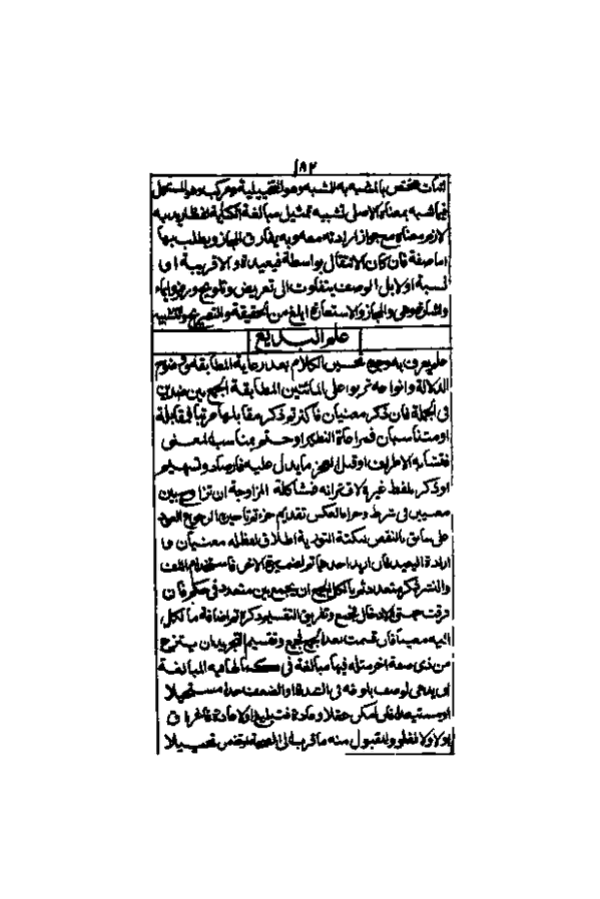 ١٨٢
اثبات مختص بالمشبه به للمشبه وهو التخييلية ومركب وهو المستعمل
فيما شبه بمعناه الاصلي تشبيه تمثيل مبالغة الكناية لفظ اريد به
لازم معناه مع جواز ارادته معه وبه يفارق المجاز ويطلب بها
اما صفة فان كان الانتقال بواسطة فبعيدة والا قريبة او
نسبة او لا بل الوصف يتفاوت الى تعريض وتلويح ورمز وايماء
واشارة وهي والمجاز والاستعارة ابلغ من الحقيقة والتصريح والتشبيه
علم البديع
علم يعرف به وجوه تحسين الكلام بعد رعاية المطابقة ووضوح
الدلالة وانواعه تربو على المائتين المطابقة الجمع بين ضدين
في الجملة فان ذكر معنيان فاكثر ثم ذكر مقابلها مرتبا فمقابلة
او متناسبان فمراعاة النظير او ختم بمناسب المعنى
فتشابه الاطراف او قبل العجز ما يدل عليه فارصاد وتسهيم
او ذكر بلفظ غيره لاقترانه فمشاكلة المزاوجة ان تزاوج بين
معنيين في شرط وجزاء العكس تقديم جزء ثم تاخيره الرجوع العود
على سابق بالنقض لنكتة التورية اطلاق لفظ له معنيان و
ارادة البعيد فان اريد احدهما ثم بضميره الاخر فاستخدام اللف
والنشر ذكر متعدد ثم ما لكل الجمع ان يجمع بين متعدد في حكم فان
فرقت جهتي الادخال فجمع وتفريق التقسيم ذكره ثم اضافة ما لكل
اليه معينا فان قسمت بعد الجمع فجمع وتقسيم التجريد ان ينتزع
من ذي صفة اخر مثله فيها مبالغة في كمالها فيه المبالغة
ان يدعى لوصف بلوغه في الشدة او الضعف حدا مستحيلا
او مستبعدا فان امكن عقلا وعادة فتبليغ او لا عادة فاغراق
او لا ولا فغلو والمقبول منه ما قرب الى الصحة او تضمن تخييلا